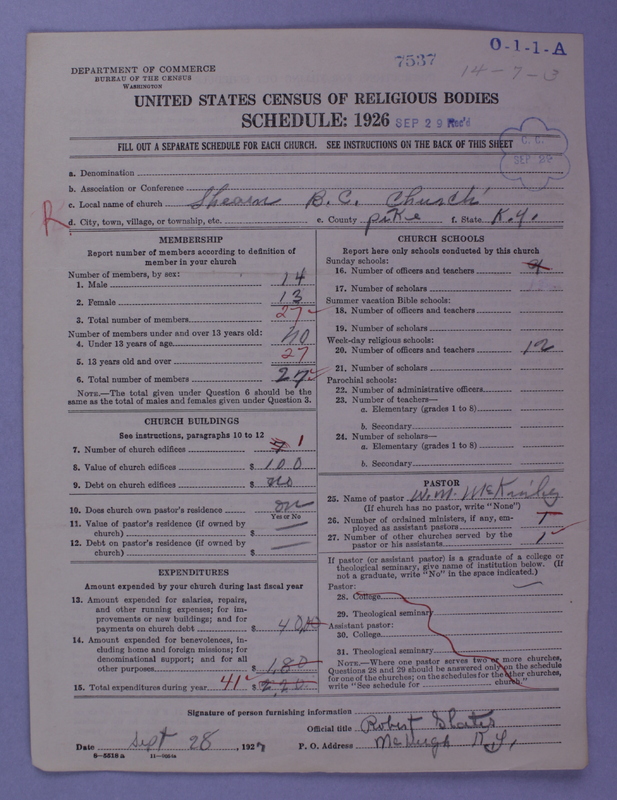 7537
O-1-1-A
14-7-3
DEPARTMENT OF COMMERCE
BUREAU OF THE CENSUS
WASHINGTON
UNITED STATES CENSUS OF RELIGIOUS BODIES
SCHEDULE: 1926
SEP 29 Rec'd
FILL OUT A SEPARATE SCHEDULE FOR EACH CHURCH. SEE INSTRUCTIONS ON THE BACK OF THIS SHEET
C. C.
SEP 29
a. Denomination
b. Association or Conference
c. Local name of church B. C. Church
R
d. City, town, village, or township, etc. e. County pike f. State K.y.
MEMBERSHIP
Report number of members according to definition of
member in your church
Number of members, by sex:
1. Male 14
2. Female 13
3. Total number of members 27
Number of members under and over 13 years old:
4. Under 13 years of age no
5. 13 years old and over 27
6. Total number of members 27
NOTE.—The total given under Question 6 should be the
same as the total of males and females given under Question 3.
CHURCH BUILDINGS
See instructions, paragraphs 10 to 12
7. Number of church edifices 1
8. Value of church edifices $ 100
9. Debt on church edifices $ no
10. Does church own pastor's residence
Yes or No
11. Value of pastor's residence (if owned by
church) $
12. Debt on pastor's residence (if owned by
church) $
EXPENDITURES
Amount expended by your church during last fiscal year
13. Amount expended for salaries, repairs,
and other running expenses; for im-
provements or new buildings; and for
payments on church debt $ 40
14. Amount expended for benevolences, in-
cluding home and foreign missions; for
denominational support; and for all
other purposes $ 1,80
15. Total expenditures during year 41 $ 2,20
CHURCH SCHOOLS
Report here only schools conducted by this church
Sunday schools:
16. Number of officers and teachers
17. Number of scholars
Summer vacation Bible schools:
18. Number of officers and teachers
19. Number of scholars
Week-day religious schools:
20. Number of officers and teachers 12
21. Number of scholars
Parochial schools:
22. Number of administrative officers
23. Number of teachers—
a. Elementary (grades 1 to 8)
b. Secondary
24. Number of scholars—
a. Elementary (grades 1 to 8)
b. Secondary
PASTOR
25. Name of pastor W. M. McKinley
(If church has no pastor, write "None")
26. Number of ordained ministers, if any, em-
ployed as assistant pastors
27. Number of other churches served by the
pastor or his assistants 1
If pastor (or assistant pastor) is a graduate of a college or
theological seminary, give name of institution below. (If
not a graduate, write "No" in the space indicated.)
Pastor:
28. College
29. Theological seminary
Assistant pastor:
30. College
31. Theological seminary
NOTE.—Where one pastor serves two or more churches,
Questions 28 and 29 should be answered only on the schedule
for one of the churches; on the schedules for the other churches,
write "See schedule for church."
Signature of person furnishing information
Official title Robert Slater
Date Sept 28, 192 P. O. Address McVeigh K.y.
8-5518 a